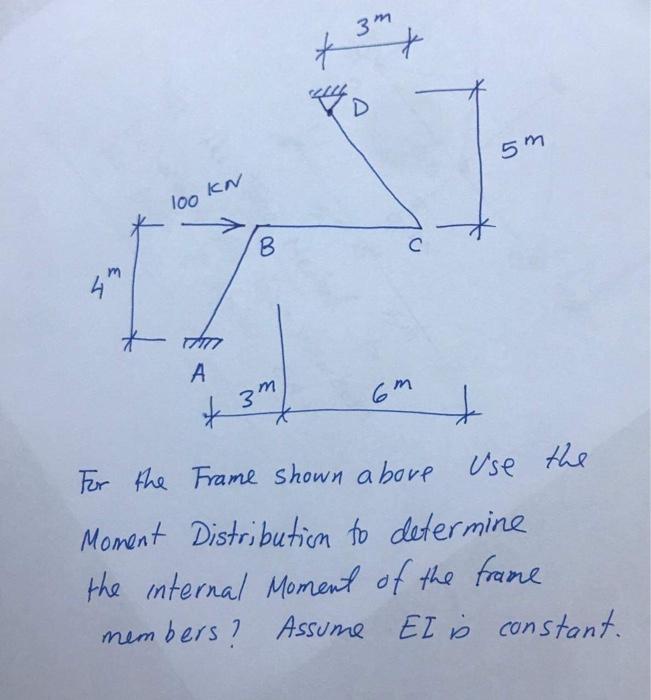 3m
D
5m
100 KN
B
C
4m
A
3m
6m
For the Frame shown above Use the
Moment Distribution to determine
the internal Moment of the frame
members? Assume EI is constant.